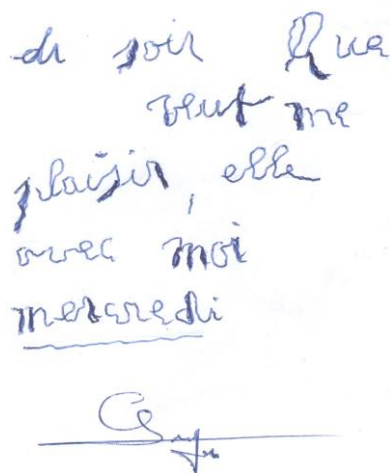 di soir Que
veut me
plaisir, elle
avec moi
mercredi